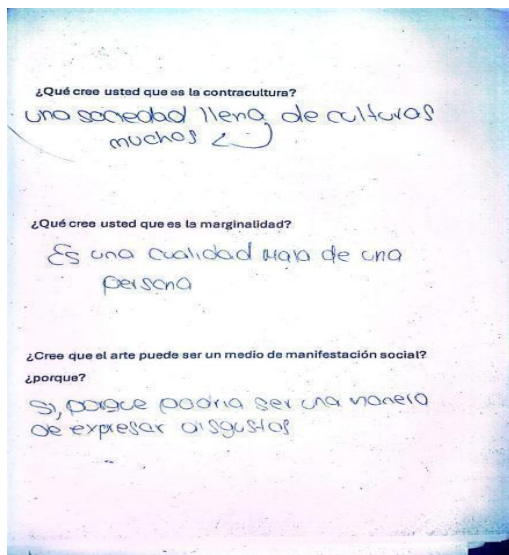 ¿Qué cree usted que es la contracultura?
una sociedad llena de culturas
muchos
¿Qué cree usted que es la marginalidad?
Es una cualidad mala de una
persona
¿Cree que el arte puede ser un medio de manifestación social?
¿porque?
Si, porque podria ser una manera
de expresar disgustos